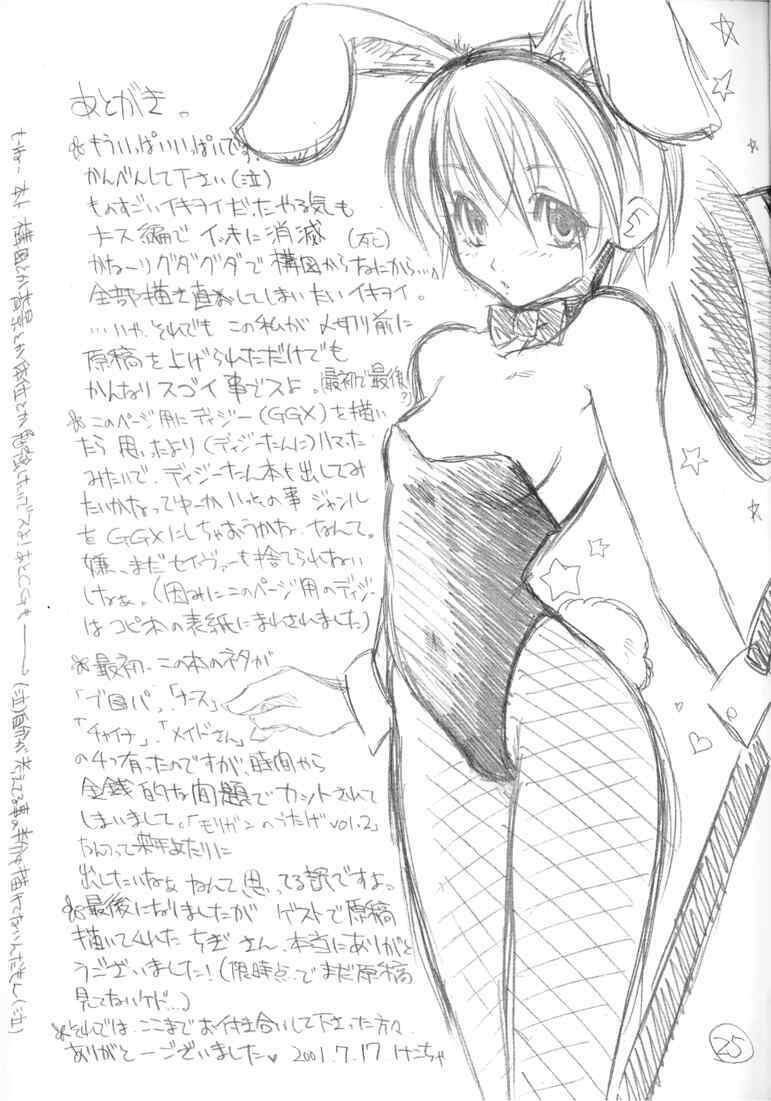 あとがき。
もういっぱいいっぱいです。
かんべんして下さい(泣)
ものすごいイキヲイだったやる気も
ナース編でイッキに消滅(死)
かな〜りグダグダで構図からなにから…
全部描き直おしてしまいたいイキヲイ。
…いや、それでもこの私が〆切り前に
原稿を上げられただけでも
かんなりスゴイ事でスよ。(最初で最後?)
このページ用にディジー(GGX)を描い
たら思ったより(ディジーたんに)ハマった
みたいで、ディジーたん本も出してみ
たいかなってゆーかいっその事ジャンル
をGGXにしちゃおうかな、なんて。
嫌、まだセイヴァーも捨てられない
しなぁ。(因みにこのページ用のディジー
はコピ本の表紙にまわされました)
最初、この本のネタが
「ブ同パ」、「ナース」
「チャイナ」、「メイドさん」
の4つ有ったのですが、時間から
金銭的な問題でカットされて
しまいまして。「モリガンのうたげvol.2」
なんつって来年あたりに
出したいなぁなんて思ってる訳ですよ。
最後になりましたがゲストで原稿
描いてくれたちぎさん、本当にありがと
うございました!(限時点でまだ原稿
見てないケド…)
それでは、ここまでお付き合いして下さった方々
ありがと〜ございました♥ 2001.7.17 けこちゃ
構図とか背景とか
25